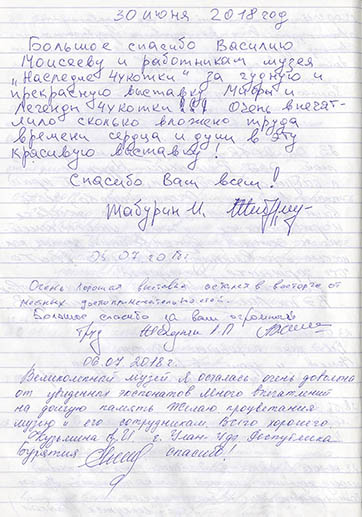 30 июня 2018 год
Большое спасибо Василию
Моисееву и работникам музея
„Наследие Чукотки" за чудную и
прекрасную выставку Мифы и
Легенды Чукотки!!! Очень впечат-
лило сколько вложено труда
времени сердца и души в эту
красивую выставку!
Спасибо Вам всем!
Жабурин И.
05.07.2018г.
Очень хорошая выставка остался в восторге от
достопримечательностей.
Большое спасибо за ваш огромный
труд
06.07 2018г.
Великолепный музей Я осталась очень довольна
от увиденных экспонатов Много впечатлений
на долгую память Желаю процветания
музею и его сотрудникам. Всего хорошего
Кузьмина В.И г. Улан-Удэ Республика
Бурятия спасибо!